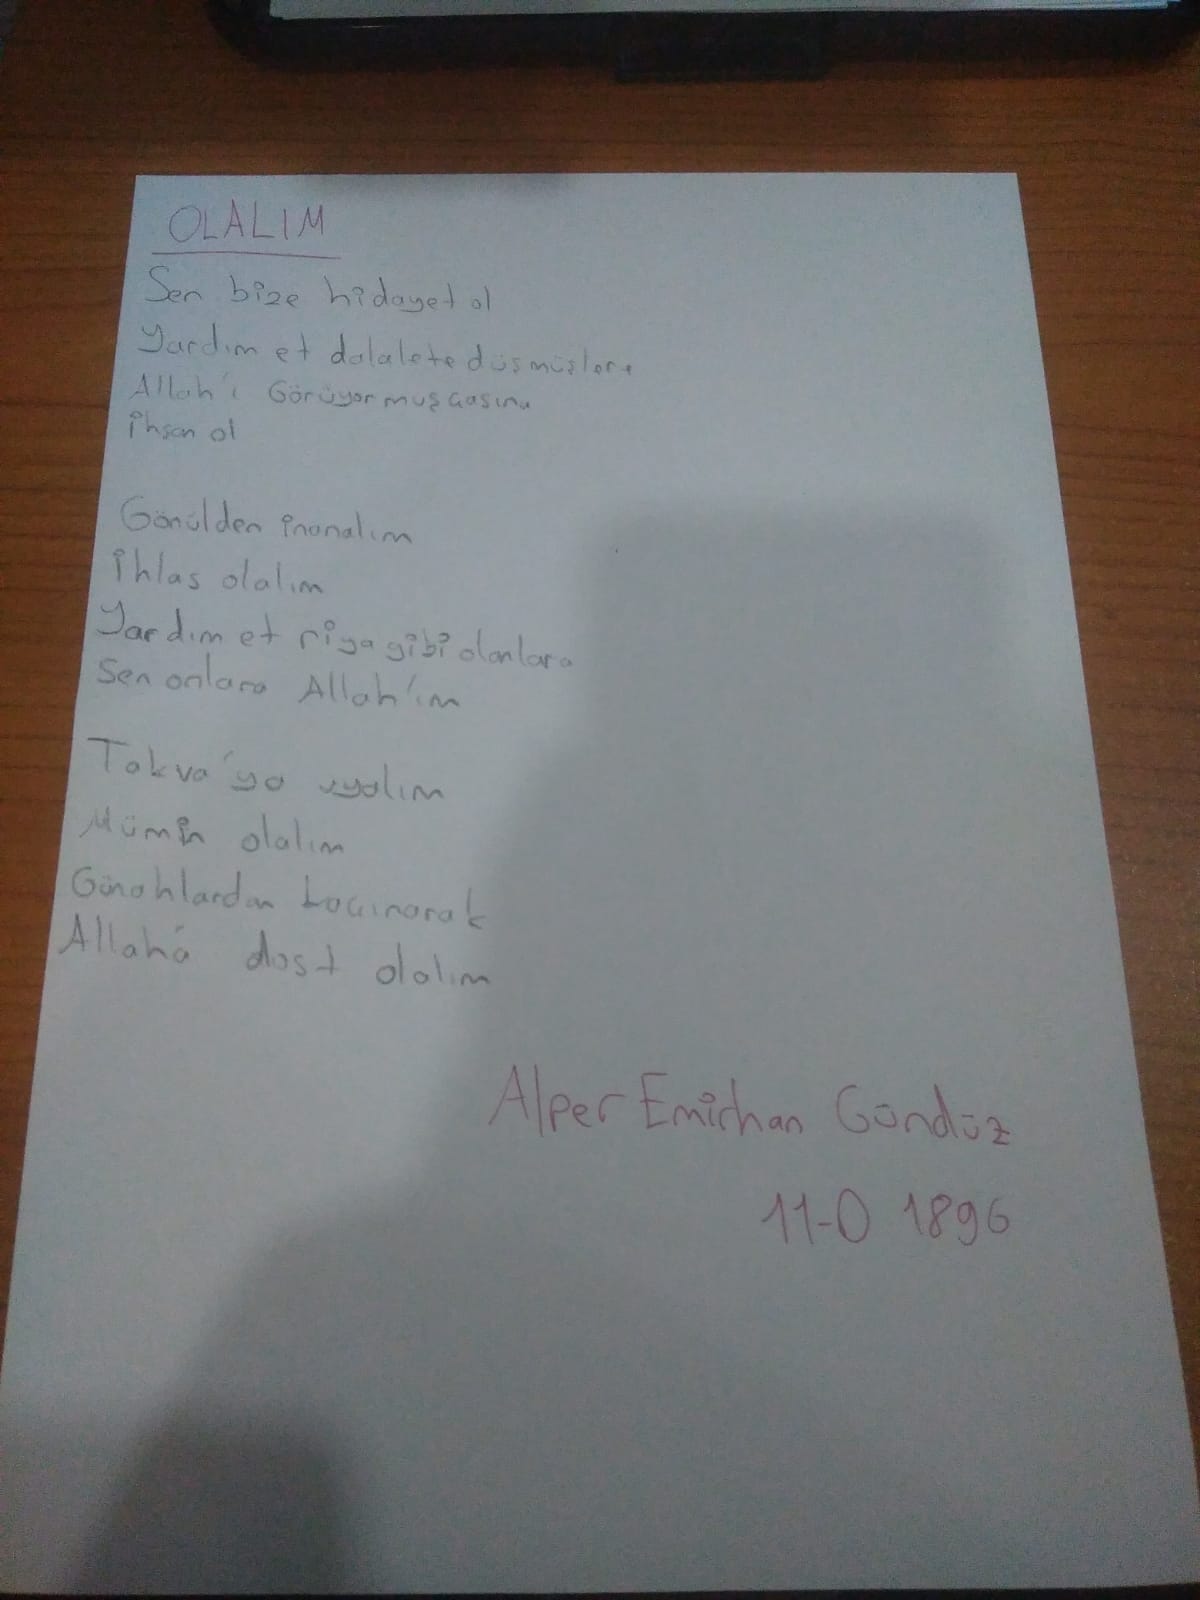 OLALIM
Sen bize hidayet ol
Yardım et dalalete düşmüşlere
Allah'ı Görüyormuşcasına
ihsan ol
Gönülden inanalım
ihlas olalım
Yardım et riya gibi olanlara
Sen onlara Allah'ım
Takva'ya uyalım
Mümin olalım
Günahlardan kaçınarak
Allah'a dost olalım
Alper Emirhan Gündüz
11-D 1896